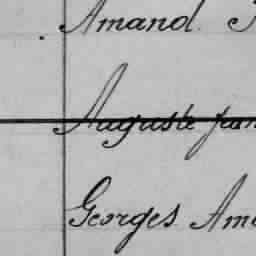 Amand
Auguste
Georges Am